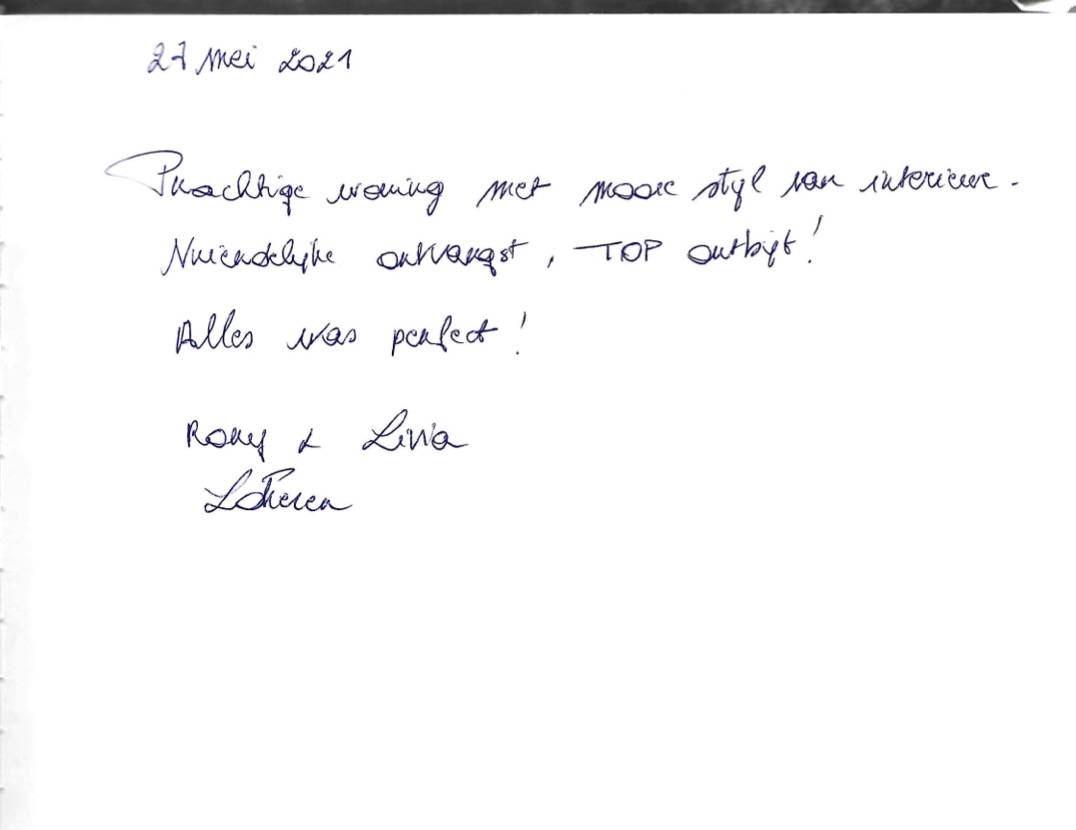 27 mei 2021
Prachtige woning met mooie styl van interieur.
Vriendelijke ontvangst, TOP ontbijt!
Alles was perfect!
Rony & Livia
Lokeren